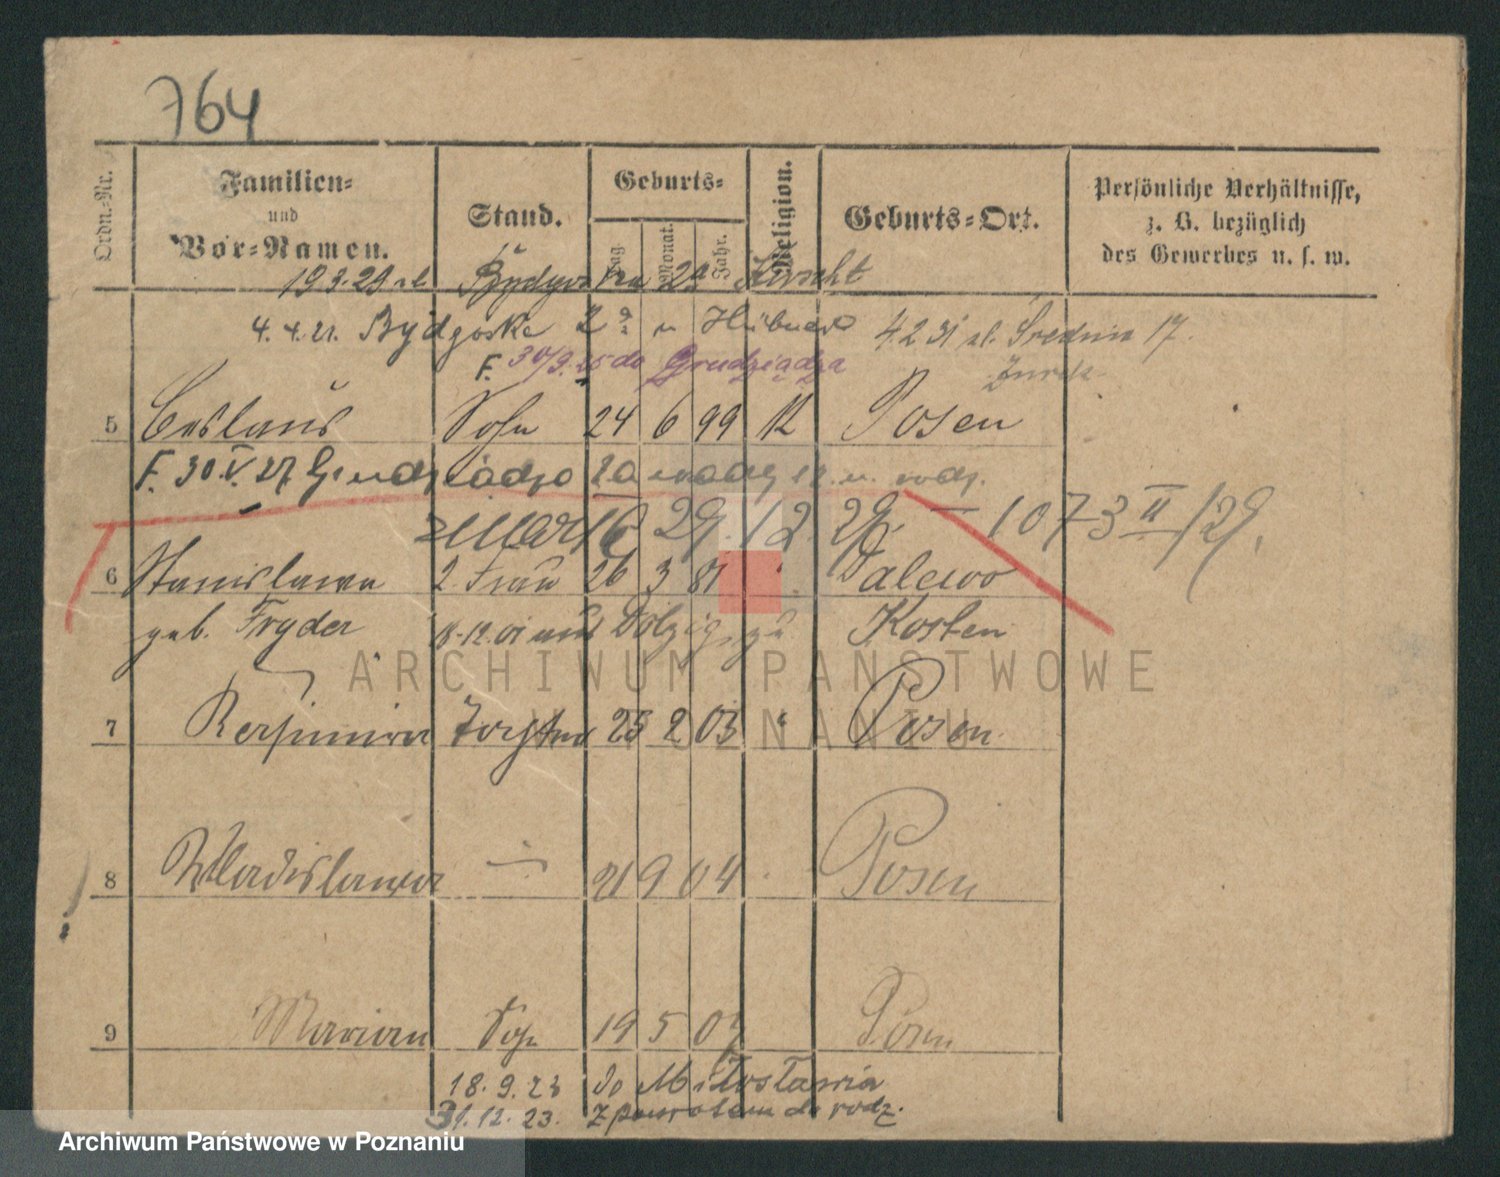 764
Ordn.-Nr.
Familien-
und
Vor-Namen.
Stand.
Geburts-
Tag
Monat.
Jahr.
Religion.
Geburts-Ort.
Persönliche Verhältnisse,
z. B. bezüglich
des Gewerbes u. s. w.
19 3. 21 ul.
4. 4. 21. Bydgoska 2a u Hübner
4 2 31 ul. Średnia 17.
F. 30/9. 25 do Grudziądza
5 Ceslaus Sohn 24 6 99 K Posen
F. 30. V. 27 Grudziądza
zmarł 29. 12. 29. – 1073 II/29.
6 Stanislawa 2. Frau 26 3 81 " Dalewo
geb. Fryder 18.12.01 aus Dolzig zu Kosten
7 Tochter 23 2 03 " Posen
8 Wladislawa — 21 9 04 Posen
9 Marian Sohn 19 5 07 Posen
18. 9. 23 do Miłosławia
31. 12. 23. z powrotem do rodz.
ARCHIWUM PAŃSTWOWE
W POZNANIU
Archiwum Państwowe w Poznaniu